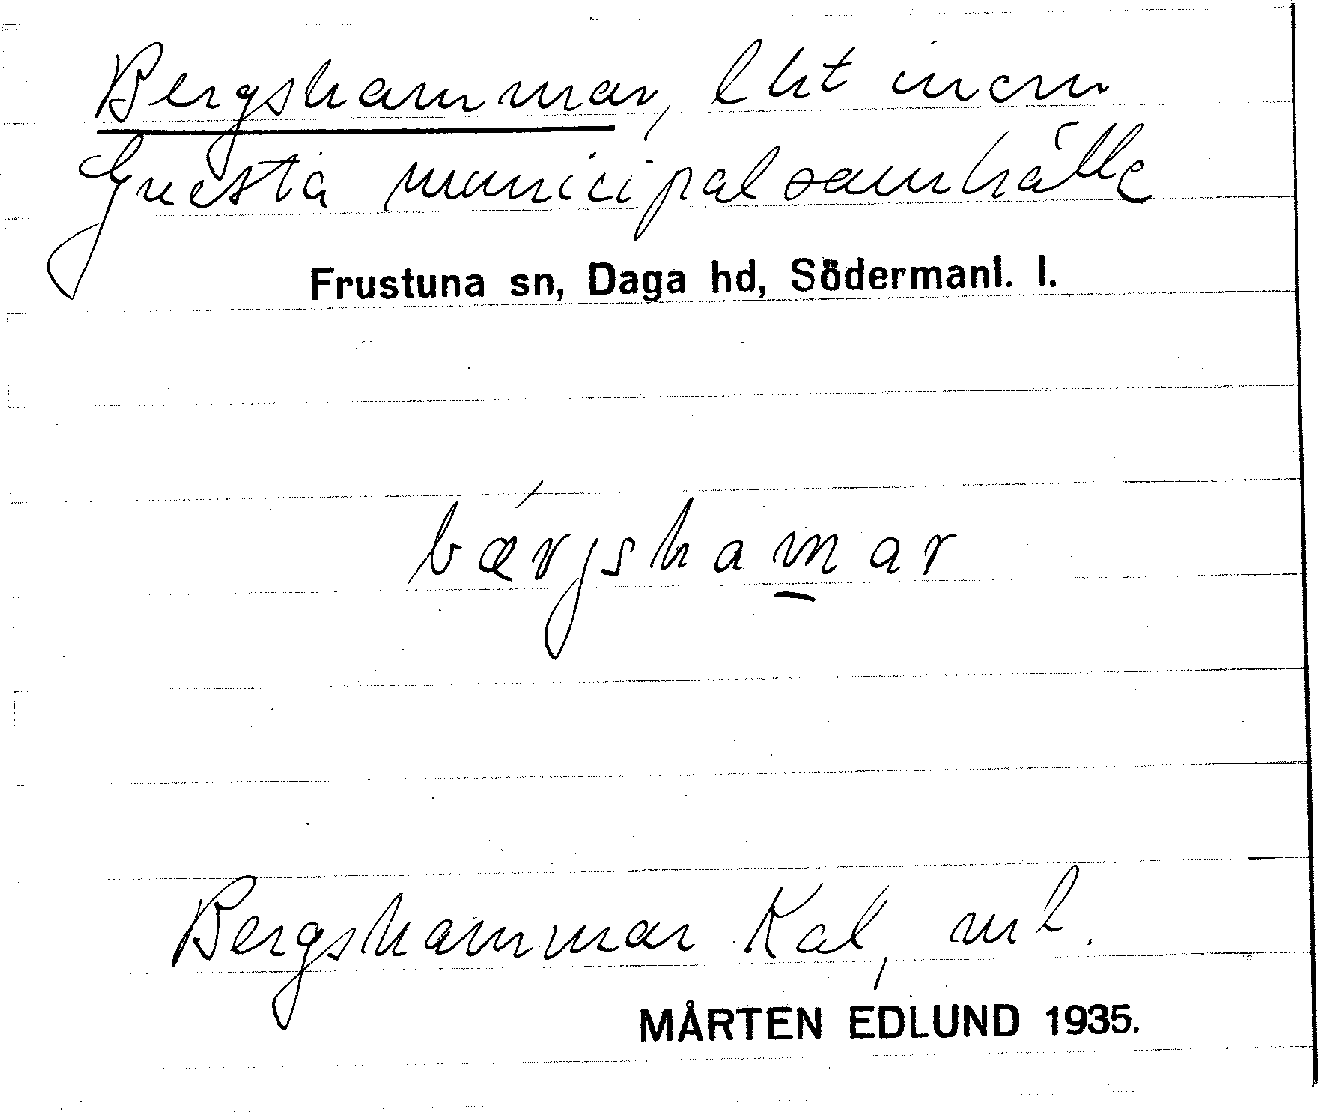 Bergshammar, lht inom
Gnesta municipalsamhälle
Frustuna sn, Daga hd, Södermanl. l.
bærjshamar
Bergshammar Kal,
MÅRTEN EDLUND 1935.